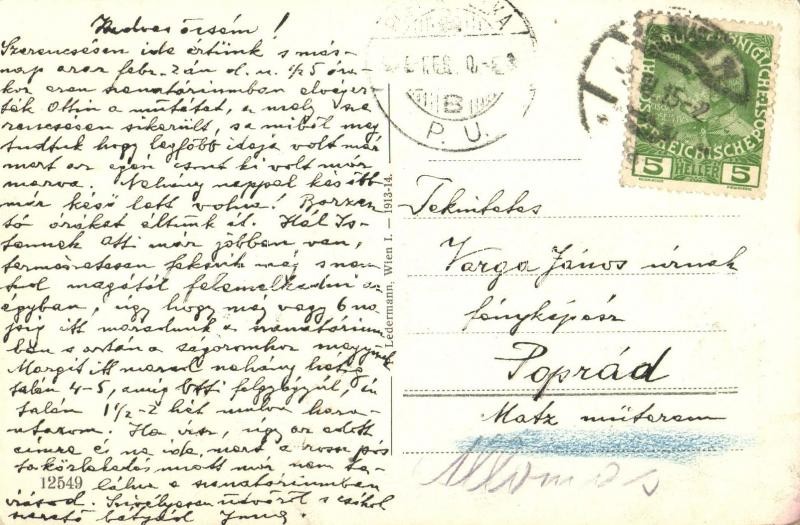 Kedves öcsém!
Szerencsésen ide értünk s más-
nap azaz febr. 2án d. u. ½5 óra-
kor ezen szanatóriumban elvégez-
ték Ottin a műtétet, a mely sze-
rencsésen sikerült, s a miből meg
tudtuk hogy legfőbb ideje volt már
mert az egész csont ki volt már
marva. Néhány nappal később
már késő lett volna! Borzasz-
tó órákat éltünk át. Hál Is-
tennek Otti már jobban van,
természetesen fekszik még s nem
tud magától felemelkedni az
ágyban, úgy hogy még vagy 6 na-
pig itt maradunk a szanatórium-
ban s aztán a sógoromhoz megyünk
Margit itt marad néhány hétig
talán 4-5, amíg Otti felgyógyúl, én
talán 1½-2 hét mulva haza-
utazom. Ha irsz, úgy az adott
címre és ne ide, mert a rossz pós-
taközlekedés miatt már nem ta-
lálna a szanatóriumban
írásod. Szívélyesen üdvözöl s csókol
szerető bátyád
12549
Ledermann, Wien I. — 1913-14.
B
P. U.
5 HELLER 5
Tekintetes
Varga János úrnak
fényképész
Poprád
Matz műterem
Állomás